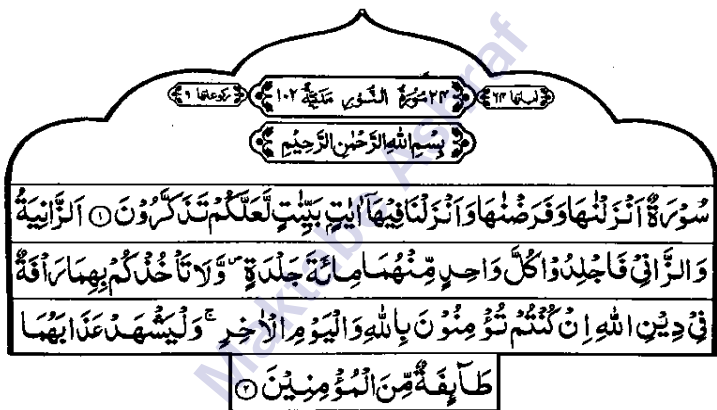 اٰیاتہا ۶۴ ۲۴ سُوْرَةُ النُّوْرِ مَدَنِيَّةٌ ۱۰۲ رکوعاتہا ۹
بِسْمِ اللهِ الرَّحْمٰنِ الرَّحِيْمِ
سُوْرَةٌ اَنْزَلْنٰهَا وَفَرَضْنٰهَا وَاَنْزَلْنَا فِيْهَآ اٰيٰتٍۢ بَيِّنٰتٍ لَّعَلَّكُمْ تَذَكَّرُوْنَ ۝۱ اَلزَّانِيَةُ
وَالزَّانِيْ فَاجْلِدُوْا كُلَّ وَاحِدٍ مِّنْهُمَا مِائَةَ جَلْدَةٍ ۪ وَّلَا تَاْخُذْكُمْ بِهِمَا رَاْفَةٌ
فِيْ دِيْنِ اللهِ اِنْ كُنْتُمْ تُؤْمِنُوْنَ بِاللهِ وَالْيَوْمِ الْاٰخِرِ ۚ وَلْيَشْهَدْ عَذَابَهُمَا
طَآىِٕفَةٌ مِّنَ الْمُؤْمِنِيْنَ ۝۲
Maktaba Ashraf